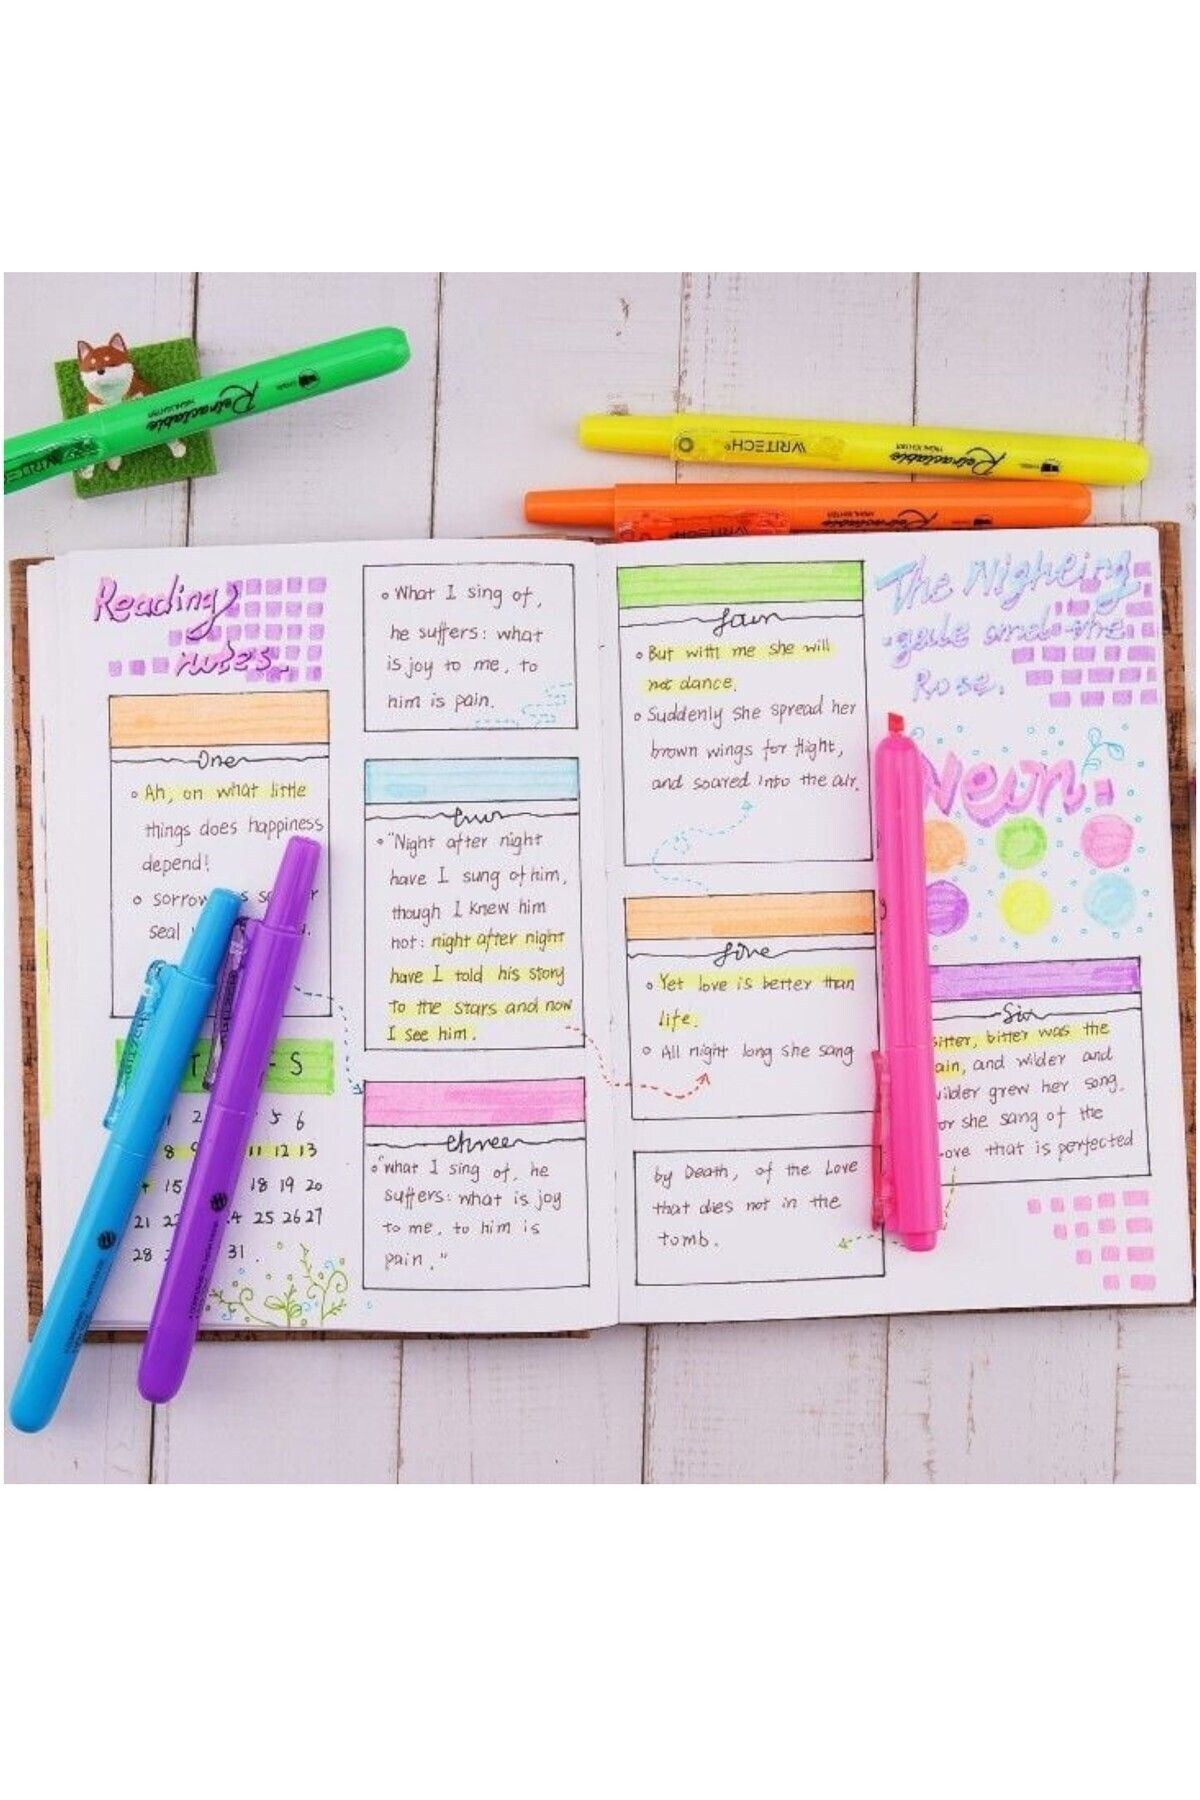 Retractable
HIGHLIGHTER
WRITECH
WRITECH®
Retractable
HIGHLIGHTER
WRITECH
Retractable
HIGHLIGHTER
Reading
notes.
One
Ah, on what little
things does happiness
depend!
sorrow
seal
T S
1 2 5 6
8 9 11 12 13
15 18 19 20
21 25 26 27
28 31
What I sing of,
he suffers: what
is joy to me, to
him is pain.
two
"Night after night
have I sung of him,
though I knew him
not: night after night
have I told his story
to the stars and now
I see him.
three
"what I sing of, he
suffers: what is joy
to me, to him is
pain."
four
But with me she will
not dance.
Suddenly she spread her
brown wings for flight,
and soared into the air.
five
Yet love is better than
life.
All night long she sang
by Death, of the Love
that dies not in the
tomb.
The Nighting
-gale and the
Rose.
Neon
Six
bitter, bitter was the
pain, and wilder and
wilder grew her song.
for she sang of the
Love that is perfected